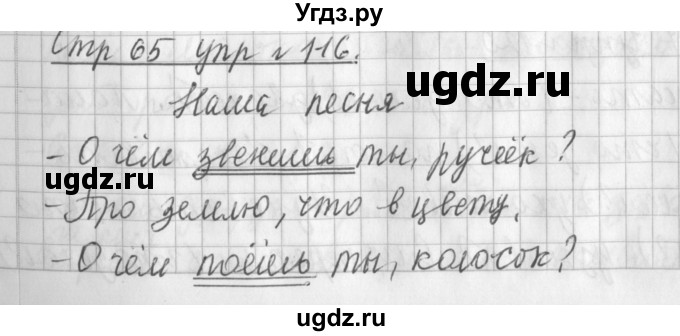 Угдз.ру
Стр 65 упр № 116.
Наша песня
- О чём звенишь ты, ручеёк?
- Про землю, что в цвету.
- О чём поёшь ты, колосок?
ugdz.ru
ugdz.ru
ugdz.ru
Угдз.ру